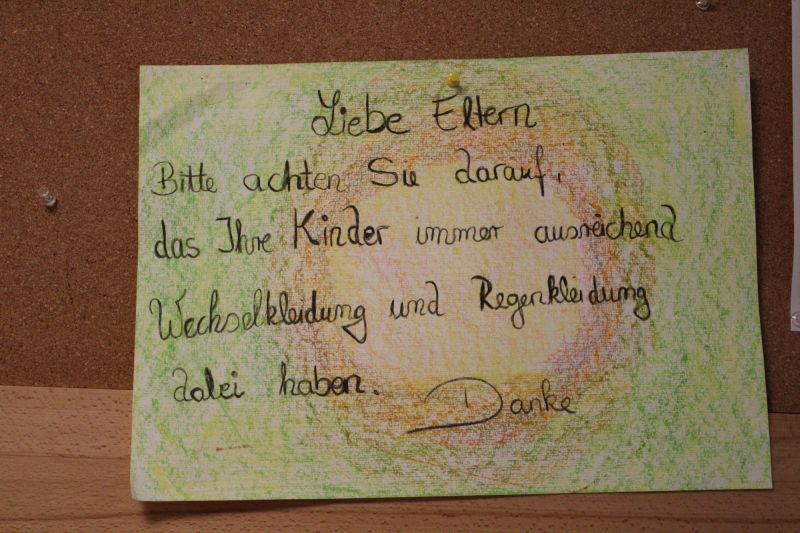 Liebe Eltern
Bitte achten Sie darauf,
das Ihre Kinder immer ausreichend
Wechselkleidung und Regenkleidung
dabei haben. Danke